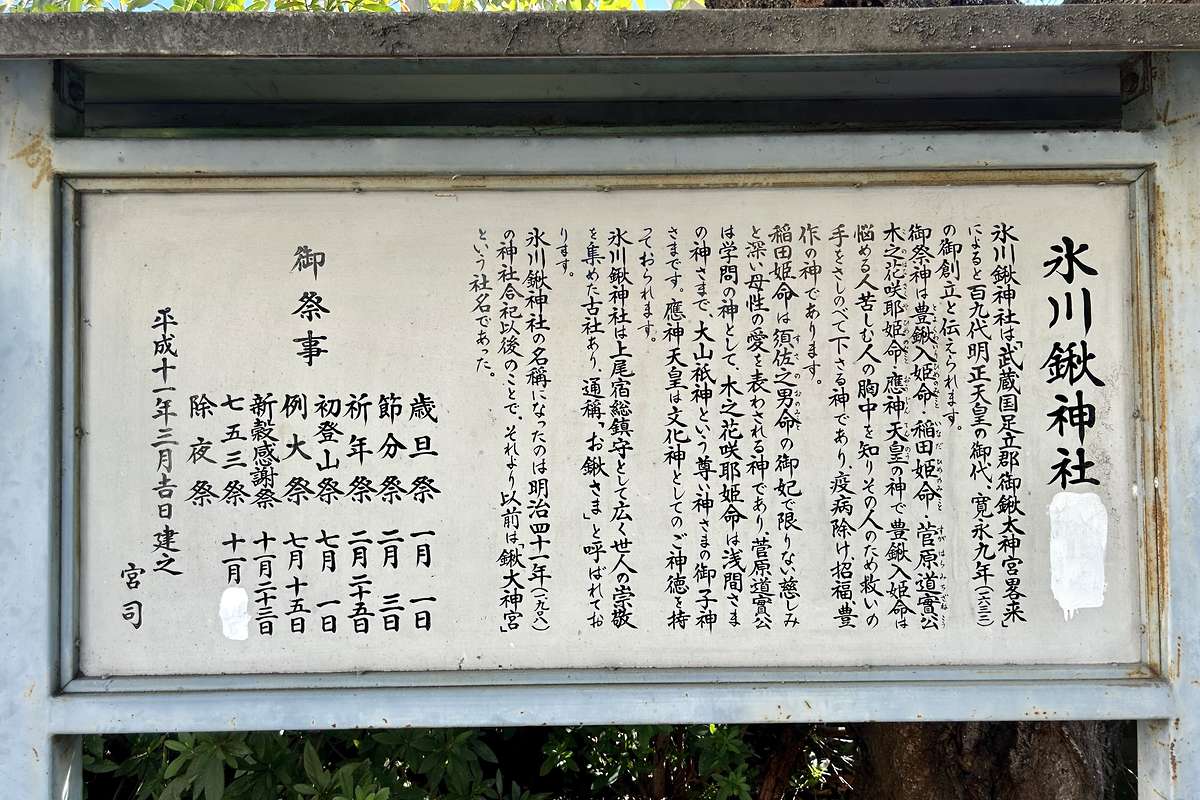 氷川鍬神社
氷川鍬神社は「武蔵国足立郡御鍬太神宮畧来」
によると百九代明正天皇の御代、寛永九年(一六三二)
の御創立と伝えられます。
御祭神は豊鍬入姫命・稲田姫命・菅原道實公
木之花咲耶姫命・應神天皇の神で豊鍬入姫命は
悩める人苦しむ人の胸中を知りその人のため救いの
手をさしのべて下さる神であり、疫病除け招福豊
作の神であります。
稲田姫命は須佐之男命の御妃で限りない慈しみ
と深い母性の愛を表わされる神であり、菅原道實公
は学問の神として、木之花咲耶姫命は浅間さま
の神さまで、大山祇神という尊い神さまの御子神
さまです。應神天皇は文化神としてのご神徳を持
っておられます。
氷川鍬神社は上尾宿総鎮守として広く世人の崇敬
を集めた古社あり、通稱「お鍬さま」と呼ばれてお
ります。
氷川鍬神社の名稱になったのは明治四十一年(一九〇八)
の神社合祀以後のことで、それより以前は「鍬大神宮」
という社名であった。
御祭事
歳旦祭 一月一日
節分祭 二月三日
祈年祭 二月二十五日
初登山祭 七月一日
例大祭 七月十五日
新穀感謝祭 十一月二十三日
七五三祭 十一月
除夜祭
平成十一年三月吉日建之
宮司